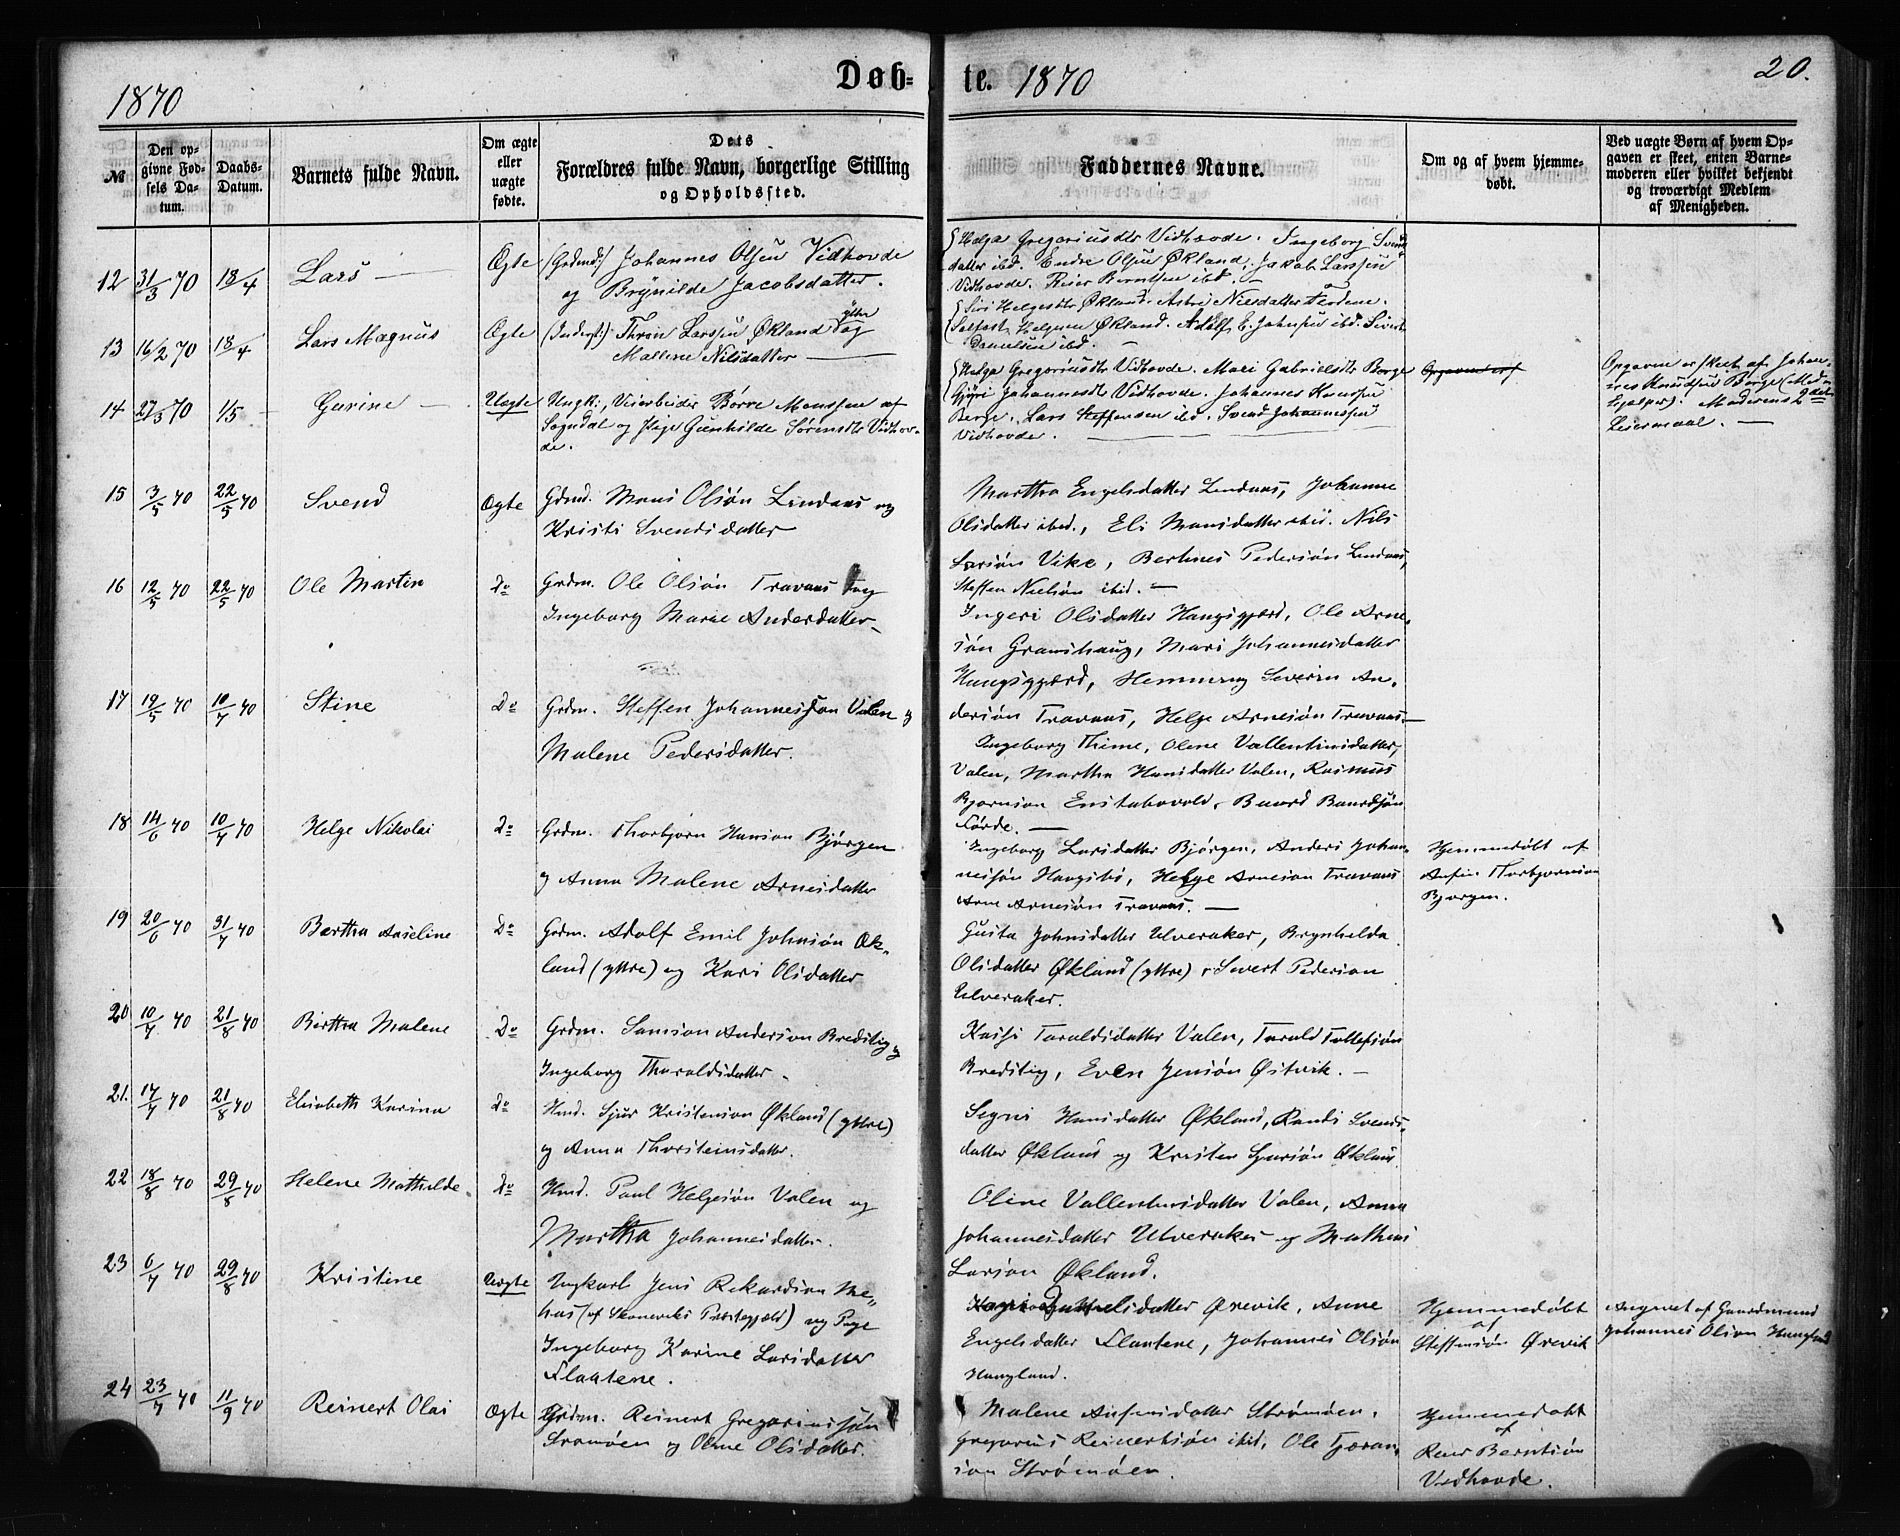 1870
Døb-
te. 1870
20.
№
Den op-
givne Fød-
sels Da-
tum.
Daabs-
Datum.
Barnets fulde Navn.
Om ægte
eller
uægte
fødte.
Dets
Forældres fulde Navn, borgerlige Stilling
og Opholdssted.
Faddernes Navne.
Om og af hvem hjemme-
døbt.
Ved uægte Børn af hvem Op-
gaven er skeet, enten Barne-
moderen eller hvilket bekjendt
og troværdigt Medlem
af Menigheden.
12 31/3 70 18/4 Lars Ægte (Grdmd:) Johannes Olsen Vidhovde
og Brynilde Jacobsdatter.
Helga Gregoriusdtr Vidhovde. Ingeborg Svends
datter ibd. Endre Olsen Økland. Jakob Larssen
Vidhovde. Reier Berntsen ibd.
13 16/2 70 18/4 Lars Magnus Ægte (Inderst:) Thron Larssen Økland ytter og
Mallene Nilsdatter
Siri Helgesdtr Økland. Astri Nilsdatter
Helgesen Økland. Adolf E. Johnsen ibd. Sivert
Danielsen ibd.
14 27/3 70 1/5 Gurine Uægte Ungk:, Veiarbeider Børre Monssen af
Sogndal og Pige Gunhilde Sørensdtr Vidhov-
de.
Helga Gregoriusdtr Vidhovde. Mari Gabrielsdtr Borge
Johannesdtr Vidhovde. Johannes
Berge. Lars Steffensen ibd. Svend Johannessen
Vidhovde.
Opgaven er skeet af Johan-
nes Knudsen Borge (Med-
hjælper). Moderens 2det
Leiermaal.
15 3/5 70 22/5 70 Svend Ægte Gdmd. Mons Olsøn Lindaas og
Kristi Svendsdatter
Marttha Engelsdatter Lindaas, Johanne
Olsdatter ibid., Eli Monsdatter ibid. Nils
Larsøn Vike, Bertines Pedersøn Lindaas,
Steffen Nielsøn ibid.
16 12/5 70 22/5 70 Ole Martin Do Grdm. Ole Olsøn Travaas og
Ingeborg Marie Andersdatter
Ingeri Olsdatter Haugsgjærd, Ole Arne-
søn Gramshaug, Mari Johannesdatter
Haugsgjærd, Hemming Severin An-
dersøn Travaas, Helge Arnesøn Travaas
17 19/5 70 10/7 70 Stine Do Grdm. Steffen Johannessøn Valen og
Malene Pedersdatter.
Ingeborg Thime, Olene Vallentinsdatter
Valen, Martha Hansdatter Valen, Rasmus
Bjørnson Enstabovold, Baard Baardsøn
Førde.
18 14/6 70 10/7 70 Helge Nikolai Do Grdm. Thorbjørn Hansøn Bjørgen
og Anna Malene Arnesdatter
Ingeborg Larsdatter Bjørgen, Anders Johan-
nesøn Haugsbø, Helge Arneson Travaas
Arne Arnesøn Travaas.
Hjemmedøbt af
Thorbjørnson
Bjørgen.
19 20/6 70 31/7 70 Bertha Aaseline Do Grdm. Adolf Emil Johnsøn Øk-
land (yttre) og Kari Olsdatter
Gusta Johnsdatter Ulveraker, Brynhilda
Olsdatter Økland (yttre), Sivert Pederson
Ulveraker.
20 10/7 70 21/8 70 Berttha Malene Do Grdm. Samson Anderson Bredslig og
Ingeborg Tharaldsdatter
Kaisi Taraldsdatter Valen, Tarald Tollefsøn
Bredslig, Even Jensøn Østvik.
21. 17/7 70 21/8 70 Elisabeth Karina Do Hmd. Sjur Kristenson Økland (yttre)
og Anna Thorsteinsdatter.
Segni Hansdatter Økland, Randi Svends-
datter Økland og Kristen Sjursøn Økland.
22 18/8 70 29/8 70 Helene Mathilde Do Hmd. Paul Helgesøn Valen og
Marttha Johannesdatter.
Oline Vallentinsdatter Valen, Anna
Johannesdatter Ulveraker og Mathias
Larson Økland.
23 6/7 70 29/8 70 Kristine Uægte Ungkarl Jens Rikardson Me-
haus (af Skonevikš Præstegjeld) og Pige
Ingeborg Karine Larsdatter
Flaatene.
Ørevik, Anne
Engelsdatter Flaatene, Johannes Olsøn
Haugland.
Hjemmedøbt
af
Steffensøn Ørevik
Angivet af Gaardmand
Johannes Olson Haugland
24 23/7 70 11/9 70 Reinert Olai Ægte Grdm. Reinert Gregoriussøn
Strømøen og Oline Olsdatter.
Malene Anfinsdatter Strømøen,
Gregorius Reinertsøn ibid, Ole
søn Strømøen.
Hjemmedøbt
af
Reier Berntsøn
Vidhovde.